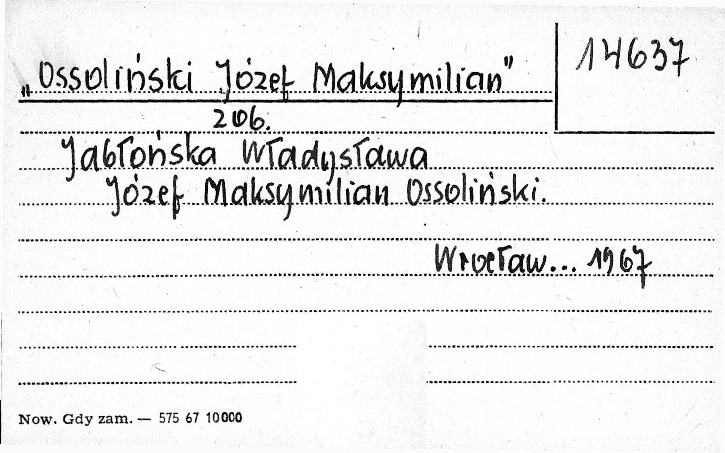 „Ossoliński Józef Maksymilian"
14637
206.
Jabłońska Władysława
Józef Maksymilian Ossoliński.
Wrocław... 1967
Now. Gdy zam. — 575 67 10000